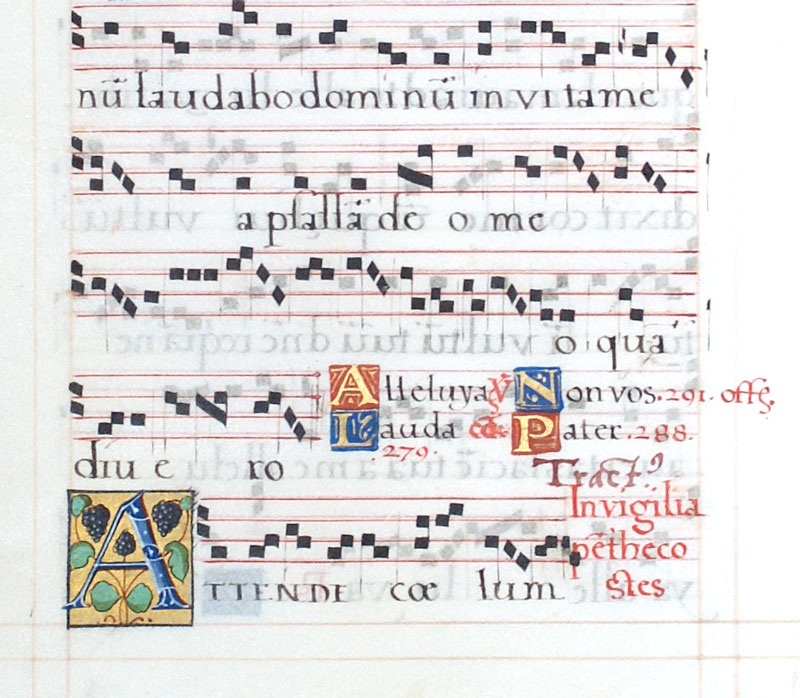 nū laudabo dominū in vita me
a psallā deo me
o quā
diu ero
Alleluya ℣ Non vos. 291. offe.
Lauda cō. Pater. 288.
279.
Tractꝰ
In vigilia
pētheco
stes
ATTENDE cœlum